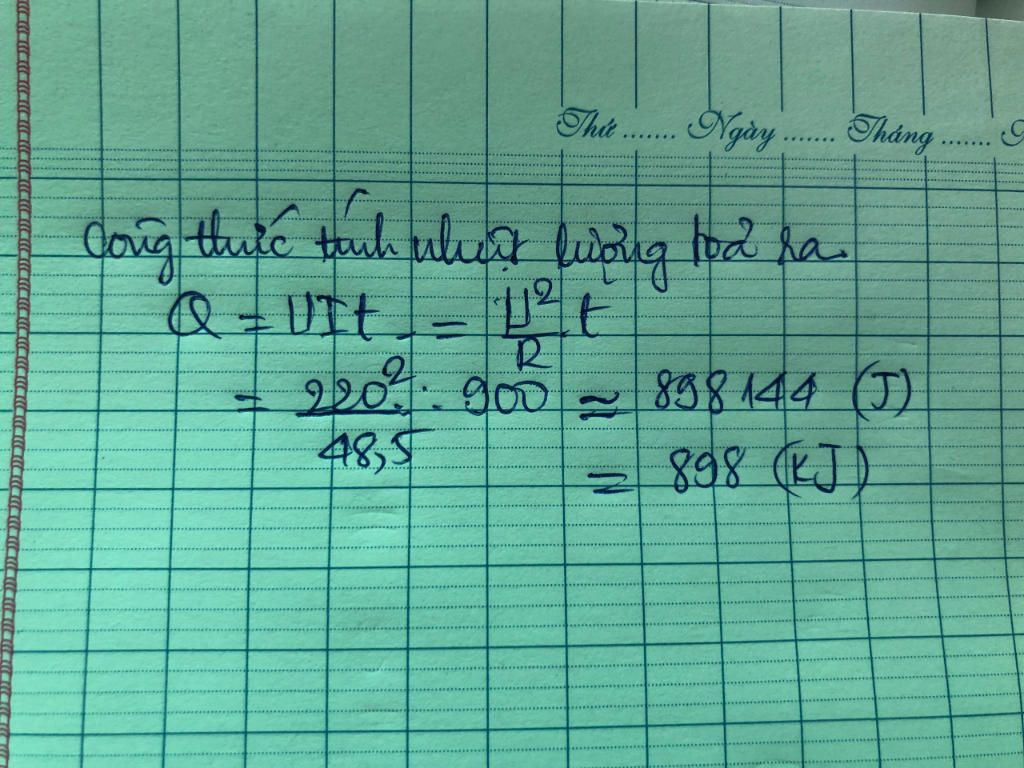 Thứ ....... Ngày ....... Tháng ....... N
Công thức tính nhiệt lượng toả ra.
Q = UIt = U²/R . t
= 220²/48,5 . 900 ≈ 898 144 (J)
= 898 (KJ)